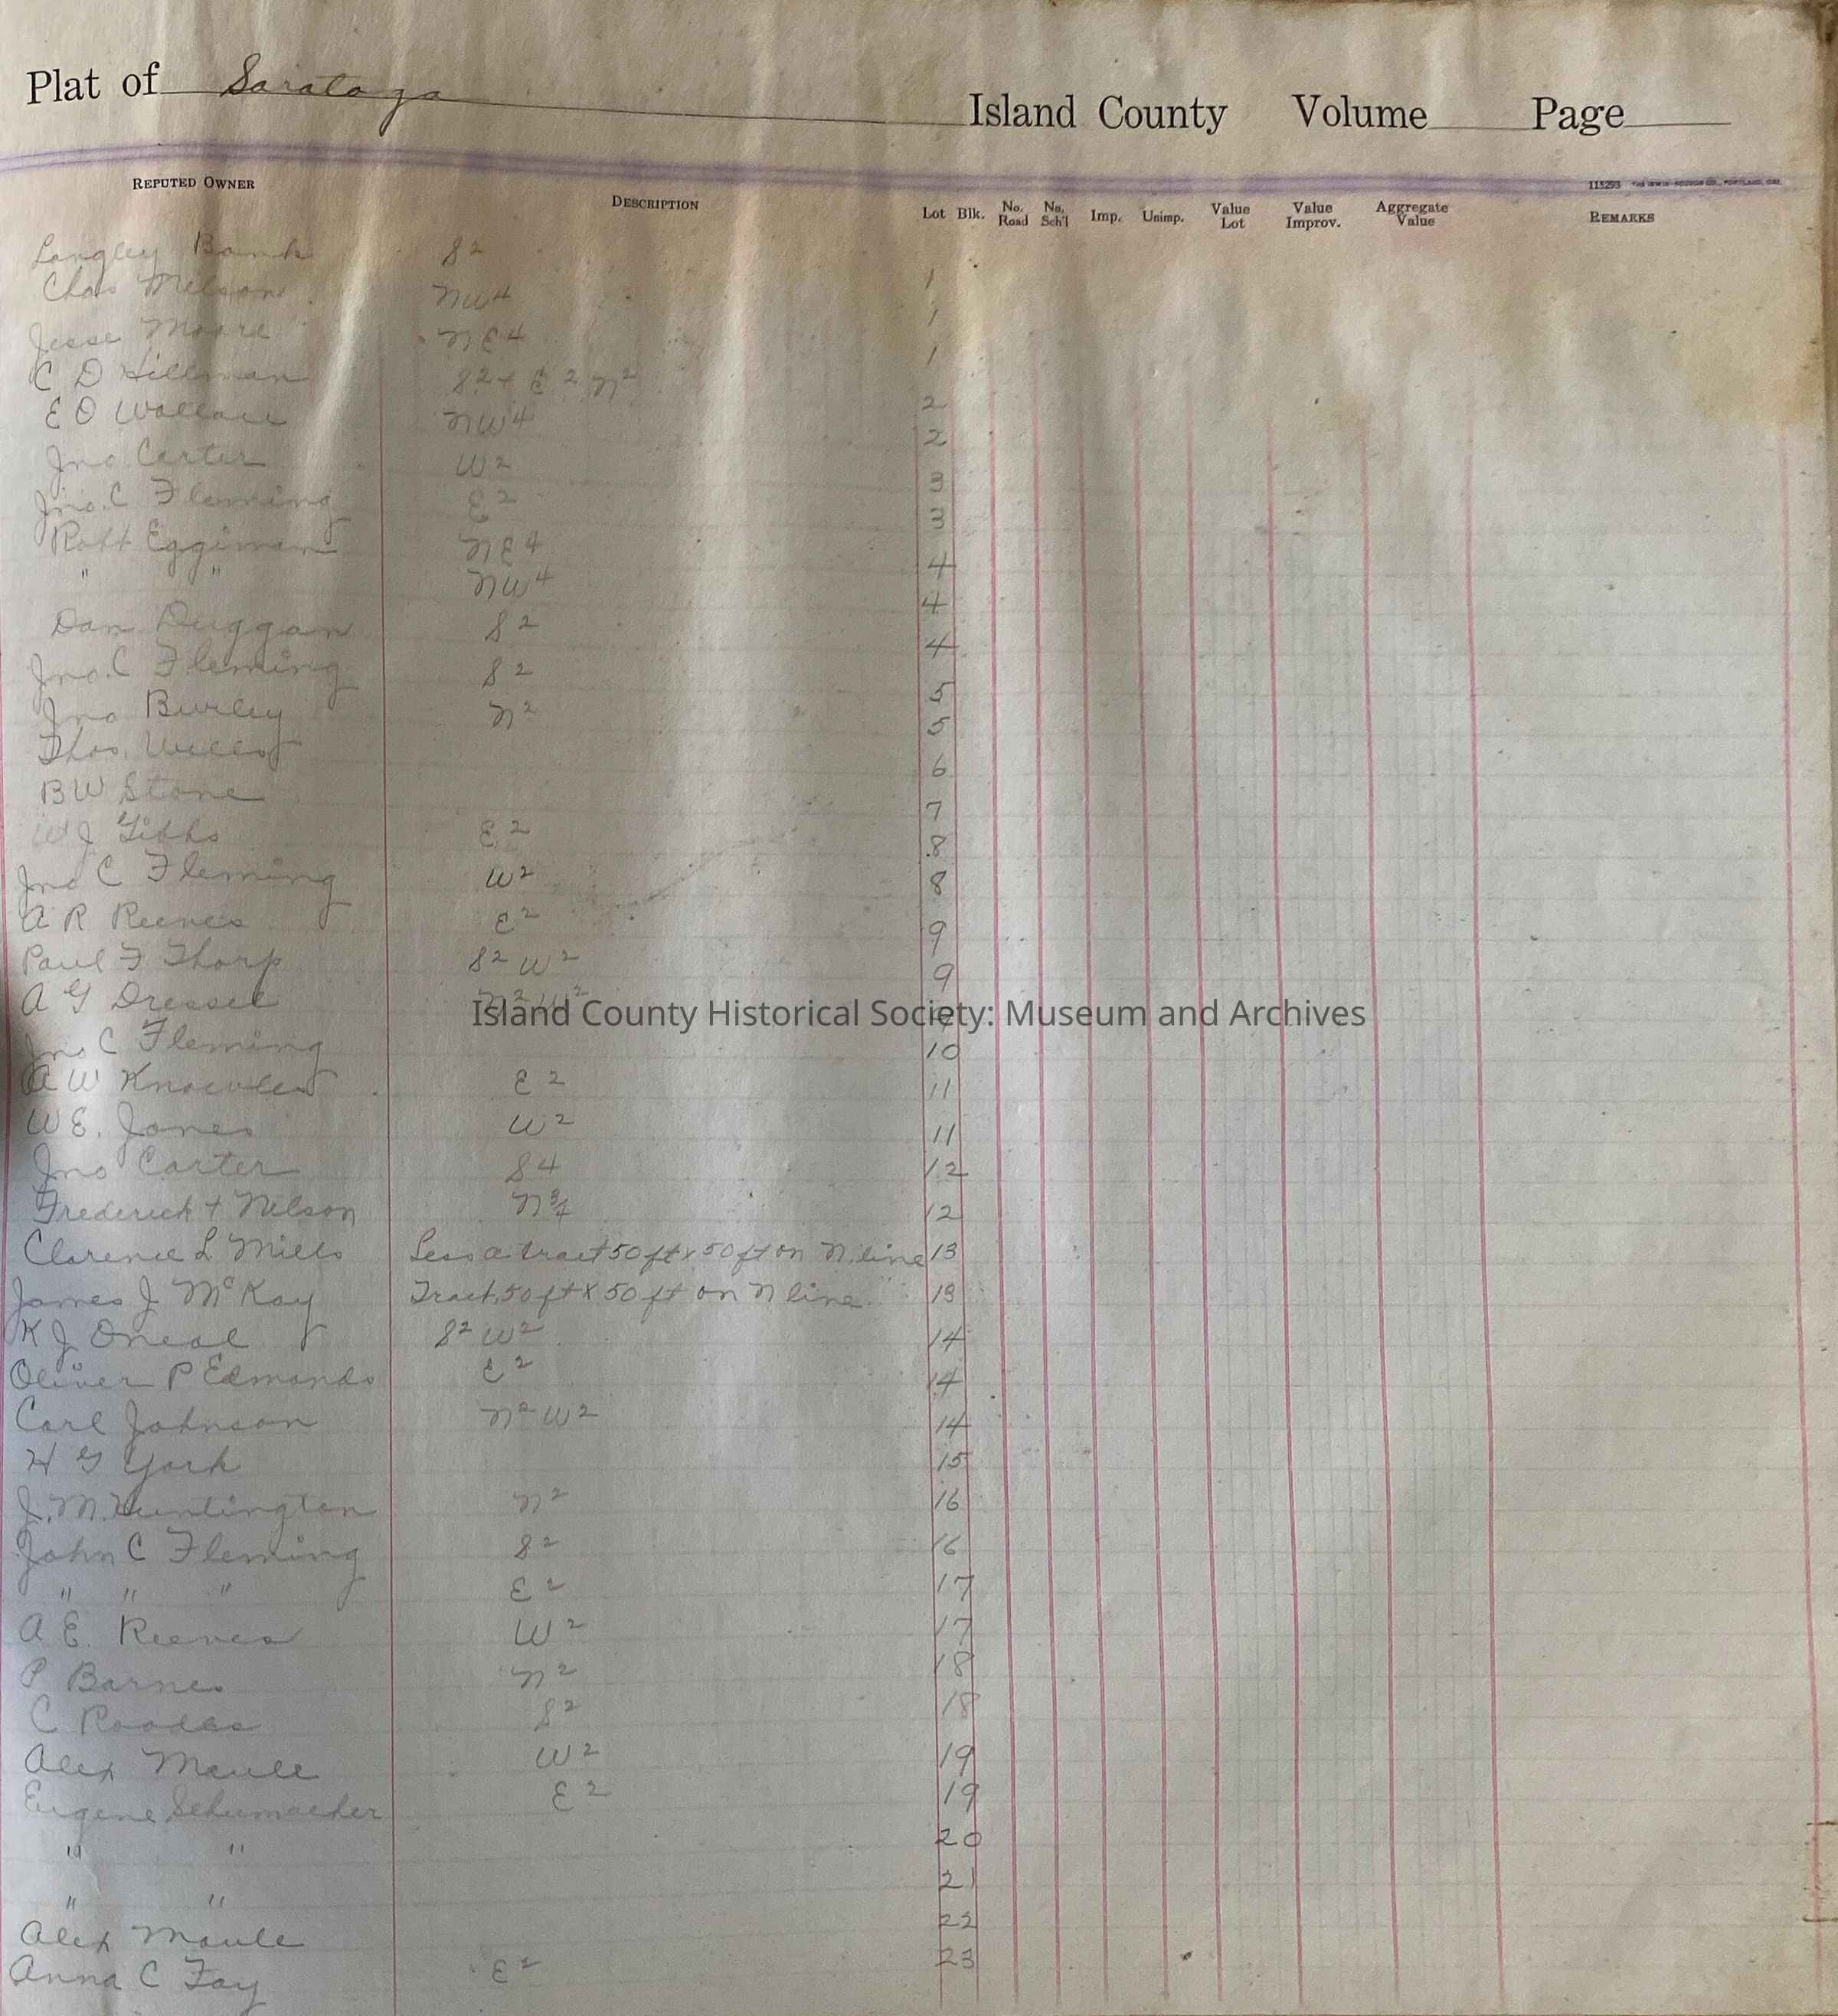 Plat of Saratoga Island County Volume Page
115293 THE IRWIN-HODSON CO., PORTLAND, ORE.
REPUTED OWNER DESCRIPTION Lot Blk. No. Road No. Sch'l Imp. Unimp. Value Lot Value Improv. Aggregate Value REMARKS
Langley Bank S2 1
Chas Nelson NW4 1
Jesse Moore NE4 1
C D Hillman S2 + E2 N2 2
E O Wallace NW4 2
Jno Carter W2 3
Jno. C Fleming E2 3
Robt Eggiman NE4 4
" " NW4 4
Dan Duggan S2 4
Jno. C Fleming S2 5
Jno Burley N2 5
Thos. Wells 6
B W Stone 7
W J Gibbs E2 8
Jno C Fleming W2 8
A R Reeves E2 9
Paul F Thorp S2 W2 9
A G Dressel N2 W2 9
Island County Historical Society: Museum and Archives
Jno C Fleming 10
A W Knowles E2 11
W E. Jones W2 11
Jno Carter S4 12
Frederick + Nelson N 3/4 12
Clarence L Mills Less a tract 50 ft x 50 ft on N. line 13
James J McKay Tract 50 ft X 50 ft on N line 13
K J Oneal S2 W2 14
Oliver P Edmands E2 14
Carl Johnson N2 W2 14
H G York 15
J. M. Huntington N2 16
John C Fleming S2 16
" " " E2 17
A E. Reeves W2 17
P Barnes N2 18
C Roodes S2 18
Alex Maule W2 19
Eugene Schumacher E2 19
" " 20
" " 21
Alex Maule 22
Anna C Fay E2 23